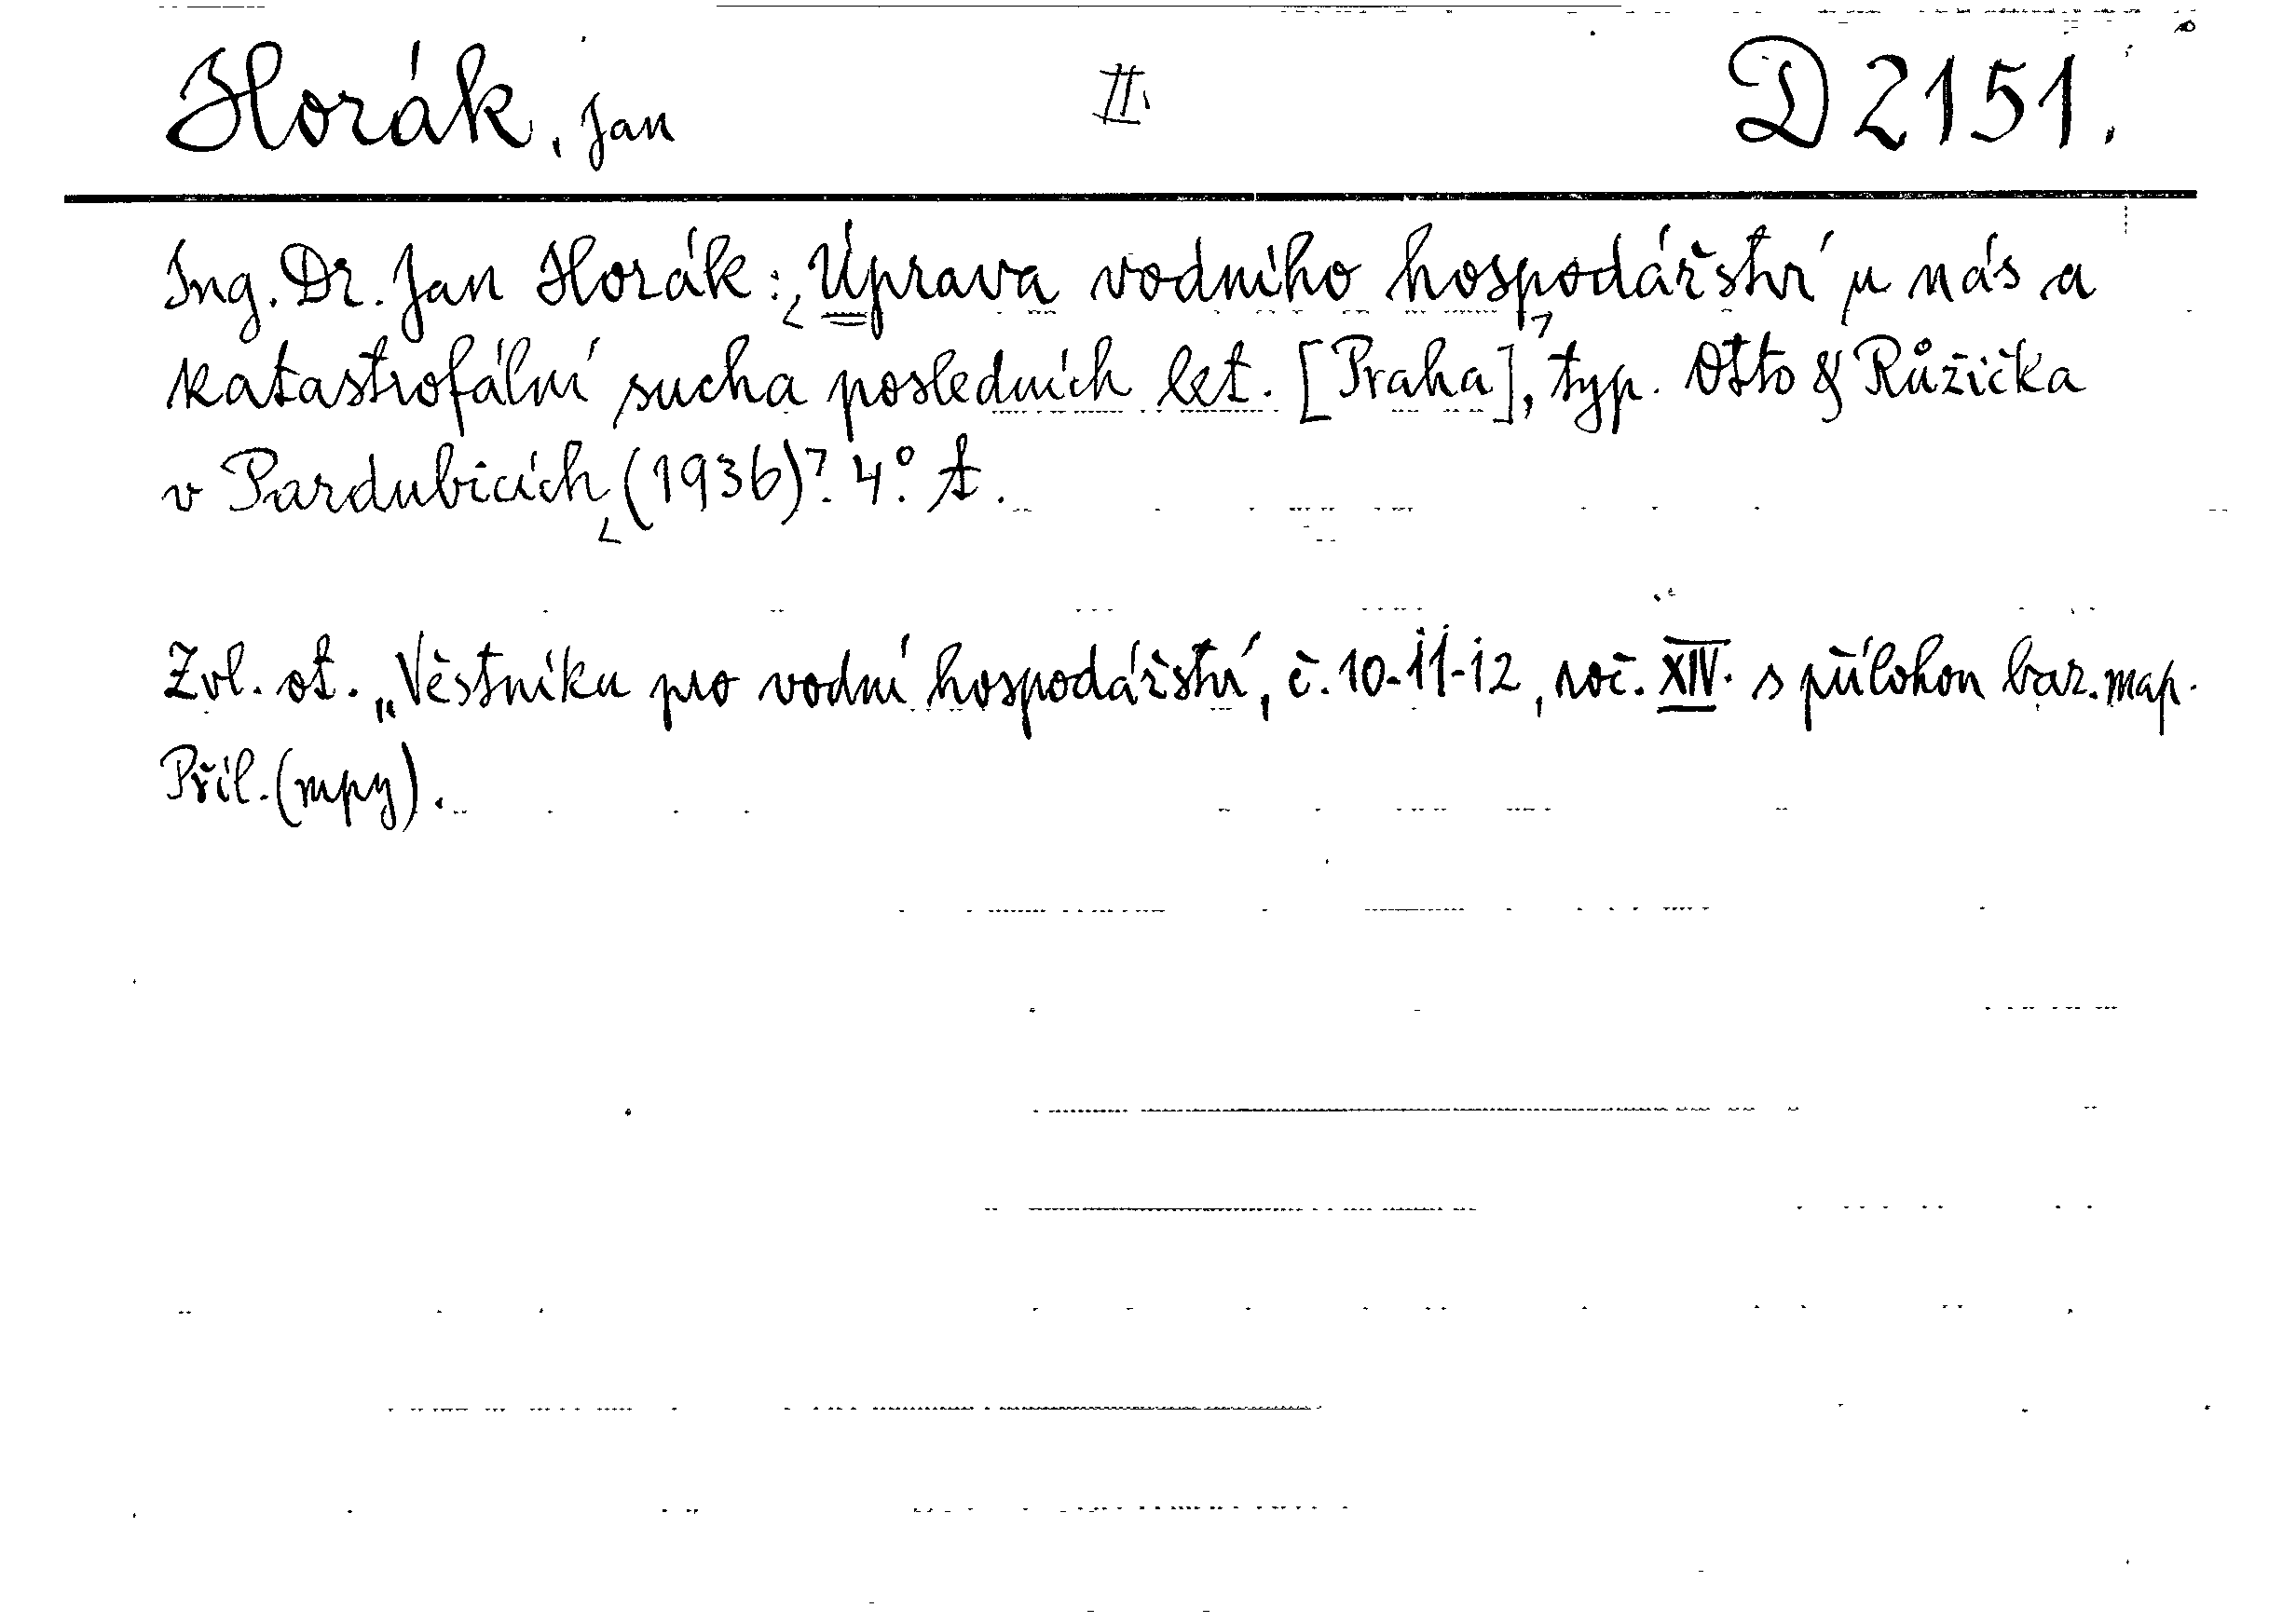 Horák, Jan II. D 2151.
Ing. Dr. Jan Horák: Úprava vodního hospodářství u nás a
katastrofální sucha posledních let. [Praha], typ. Otto & Růžička
v Pardubicích (1936)? 4°. A.
Zvl. ot. „Věstníku pro vodní hospodářství, č. 10-11-12, roč. XIV. s přílohou bar. map.
Příl. (mpy).